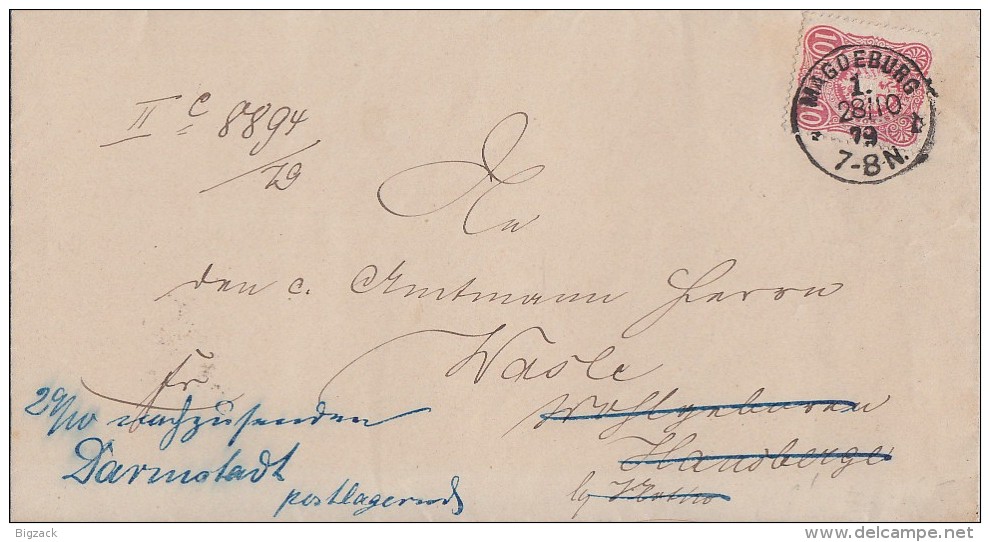 10 10
MAGDEBURG
1.
28|10
79
7-8 N.
II c 8894
/79
An
den c. Amtmann Herrn
Wasle
Fr
Wohlgeboren
29/10 nachzusenden
Hausberge
Darmstadt
postlagernd
Bigzack
delcampe.net